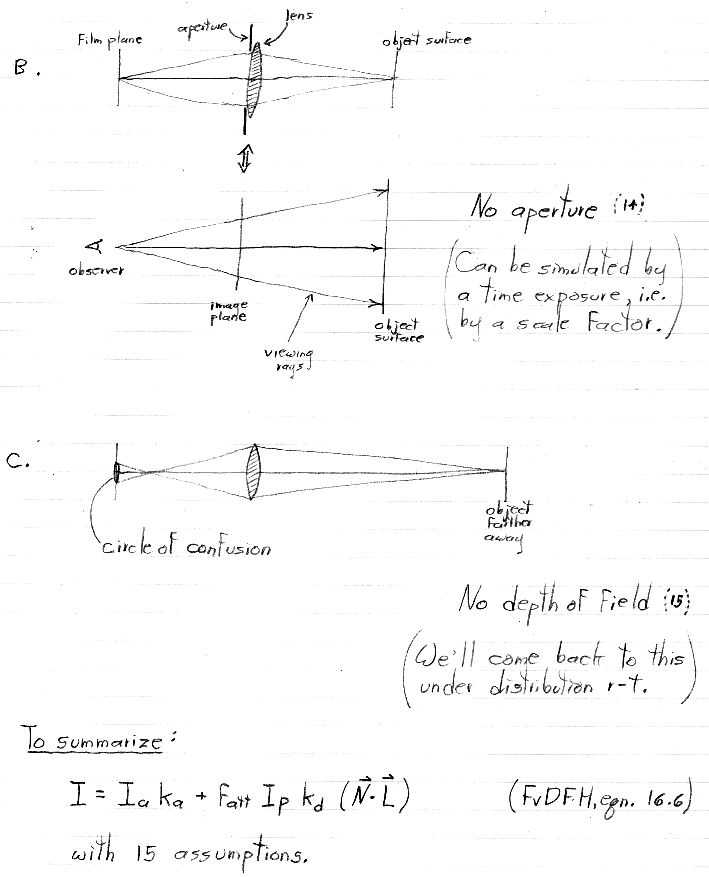 B.
Film plane
aperture
lens
object surface
observer
image
plane
viewing
rays
object
surface
No aperture {14}
(Can be simulated by
a time exposure, i.e.
by a scale factor.)
C.
circle of confusion
object
farther
away
No depth of field {15}
(We'll come back to this
under distribution r-t.)
To summarize:
I = Ia ka + fatt Ip kd (N⃗·L⃗)
(FvDFH, eqn. 16.6)
with 15 assumptions.